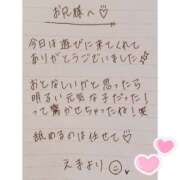 お兄様へ♡
今日は遊びに来てくれて
ありがとうございました
おとなしいかと思ったら
明るい元気な子だった!
って驚かせちゃったね!
舐めるのは任せて♡
えまより